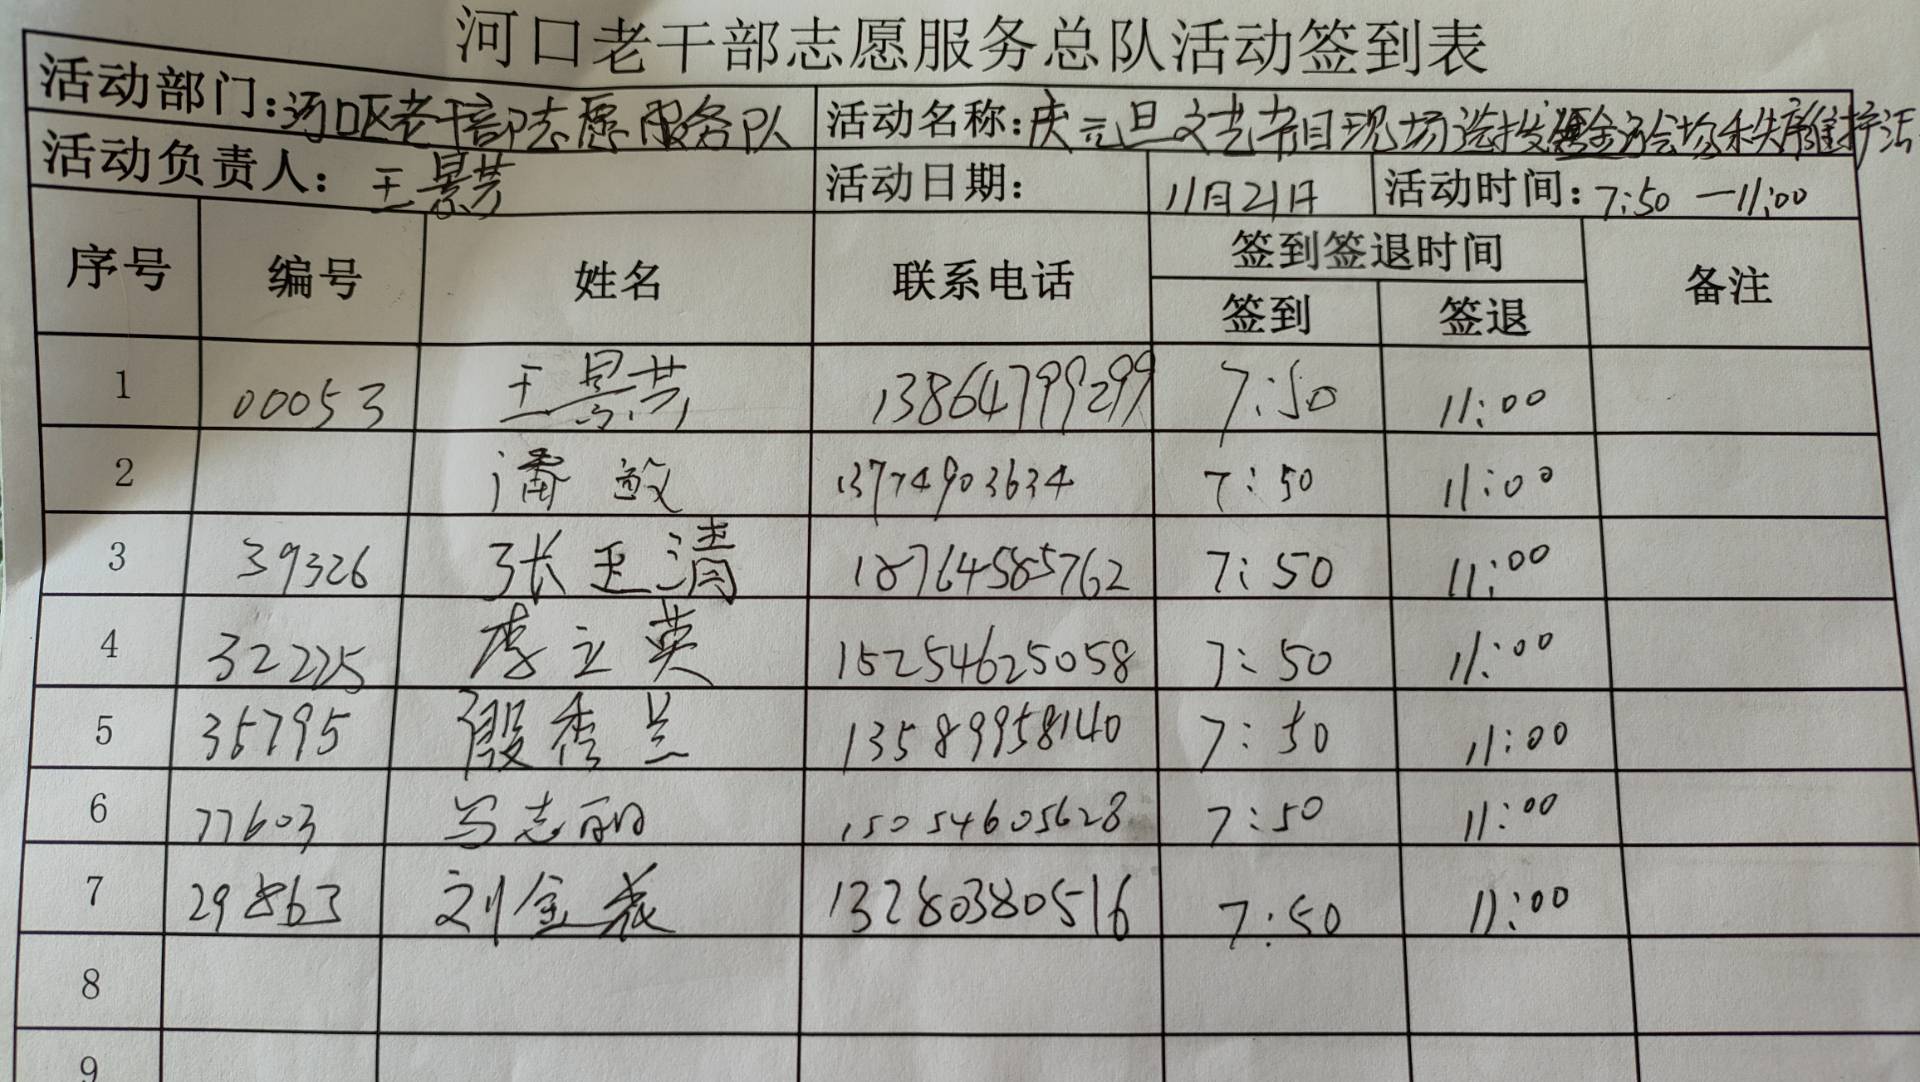 河口老干部志愿服务总队活动签到表
活动部门:河口区老干部志愿服务队 活动名称:庆元旦文艺节目现场选拔 会场秩序维护活
活动负责人: 王景芸 活动日期: 11月21日 活动时间:7:50 —11:00
序号 编号 姓名 联系电话 签到签退时间 备注
签到 签退
1 00053 王景芸 13864799299 7:50 11:00
2 潘敏 13774903634 7:50 11:00
3 39326 张玉清 18764585762 7:50 11:00
4 32225 李立英 15254625058 7:50 11:00
5 35795 殷秀兰 13589958140 7:50 11:00
6 77603 马志丽 15054605628 7:50 11:00
7 29863 刘金 13280380516 7:50 11:00
8
9